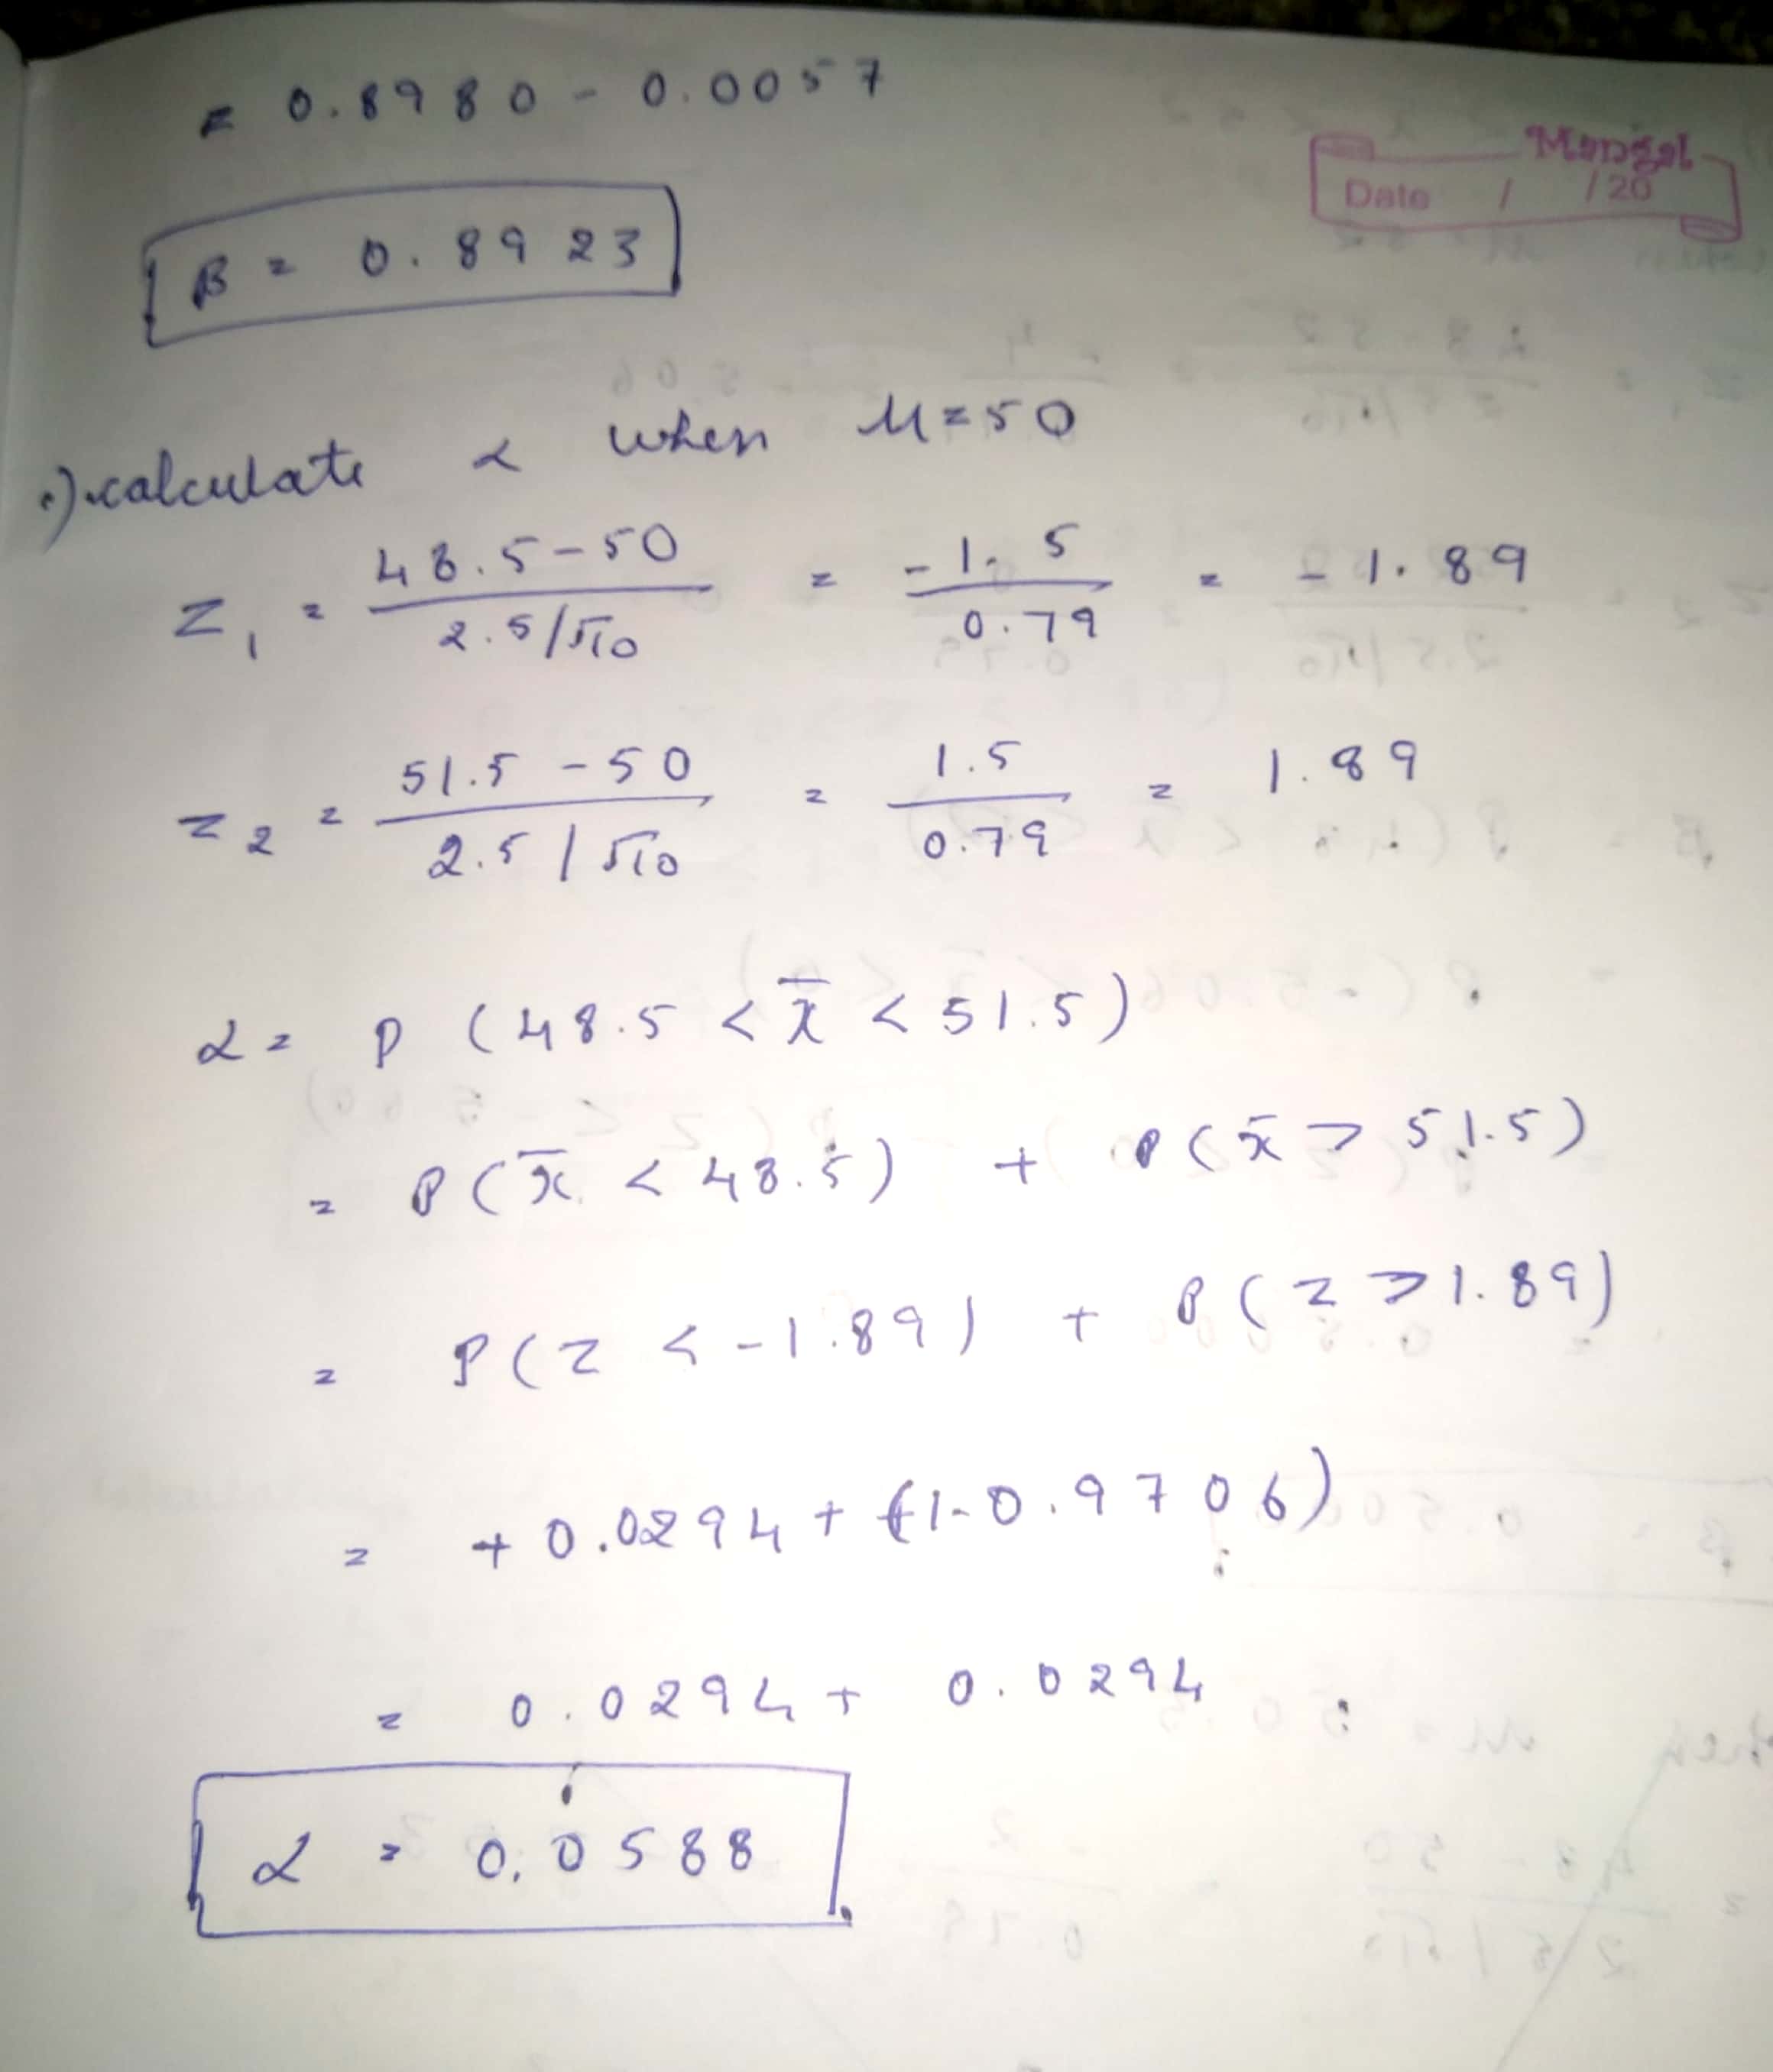 = 0.8980 - 0.0057
Mangal
Date / /20
β = 0.8923
•) calculate α when μ=50
Z₁ = (48.5-50)/(2.5/√10) = -1.5/0.79 = -1.89
Z₂ = (51.5-50)/(2.5/√10) = 1.5/0.79 = 1.89
α = P (48.5 < x̄ < 51.5)
= P(x̄ < 48.5) + P(x̄ > 51.5)
= P(Z < -1.89) + P(Z > 1.89)
= +0.0294 + (1-0.9706)
= 0.0294 + 0.0294
α = 0.0588